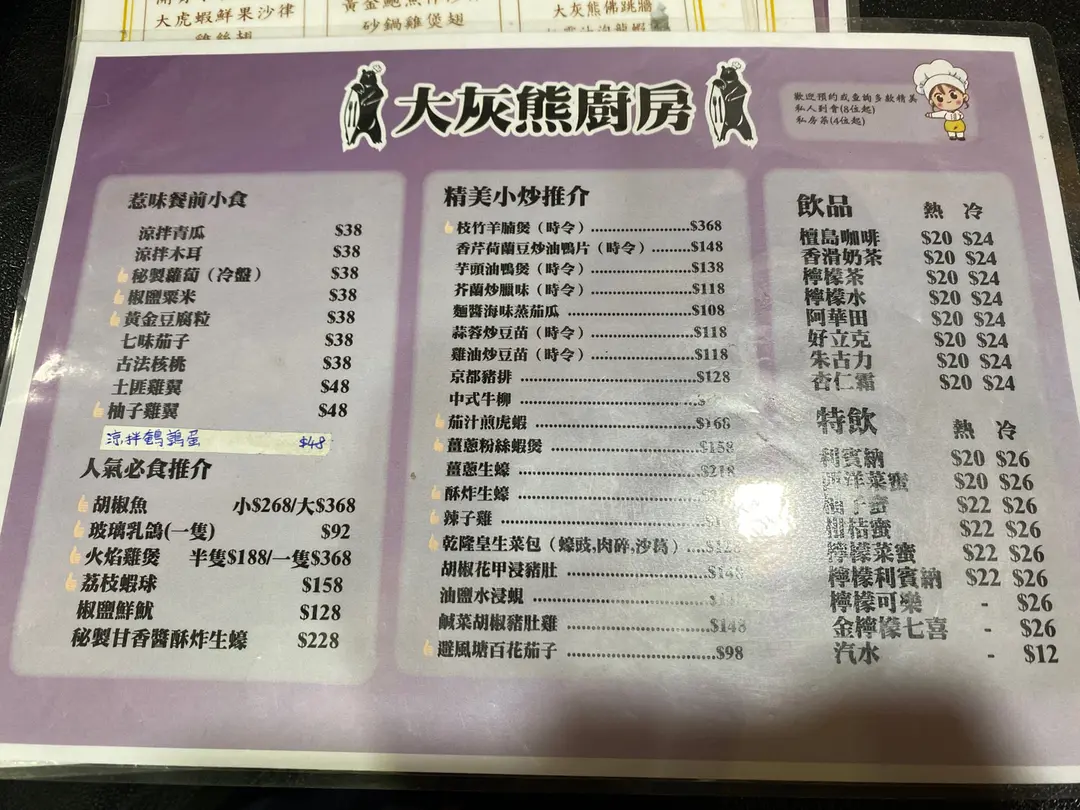 大虎蝦鮮果沙律
砂鍋雞煲翅
大灰熊佛跳牆
大灰熊廚房
歡迎預約或查詢多款精美
私人到會(8位起)
私房菜(4位起)
惹味餐前小食
涼拌青瓜 $38
涼拌木耳 $38
秘製蘿蔔（冷盤） $38
椒鹽粟米 $38
黃金豆腐粒 $38
七味茄子 $38
古法核桃 $38
土匪雞翼 $48
柚子雞翼 $48
涼拌鵪鶉蛋 $48
人氣必食推介
胡椒魚 小$268/大$368
玻璃乳鴿(一隻) $92
火焰雞煲 半隻$188/一隻$368
荔枝蝦球 $158
椒鹽鮮魷 $128
秘製甘香醬酥炸生蠔 $228
精美小炒推介
枝竹羊腩煲（時令）$368
香芹荷蘭豆炒油鴨片（時令）$148
芋頭油鴨煲（時令）$138
芥蘭炒臘味（時令）$118
麵醬海味蒸茄瓜 $108
蒜蓉炒豆苗（時令）$118
雞油炒豆苗（時令）$118
京都豬排 $128
中式牛柳
茄汁煎虎蝦 $168
薑蔥粉絲蝦煲 $158
薑蔥生蠔 $218
酥炸生蠔
辣子雞
乾隆皇生菜包（蠔豉,肉碎,沙葛）$128
胡椒花甲浸豬肚 $148
油鹽水浸蜆
鹹菜胡椒豬肚雞 $148
避風塘百花茄子 $98
飲品 熱 冷
檀島咖啡 $20 $24
香滑奶茶 $20 $24
檸檬茶 $20 $24
檸檬水 $20 $24
阿華田 $20 $24
好立克 $20 $24
朱古力 $20 $24
杏仁霜 $20 $24
特飲 熱 冷
利賓納 $20 $26
西洋菜蜜 $20 $26
柚子蜜 $22 $26
柑桔蜜 $22 $26
檸檬菜蜜 $22 $26
檸檬利賓納 $22 $26
檸檬可樂 - $26
金檸檬七喜 - $26
汽水 - $12